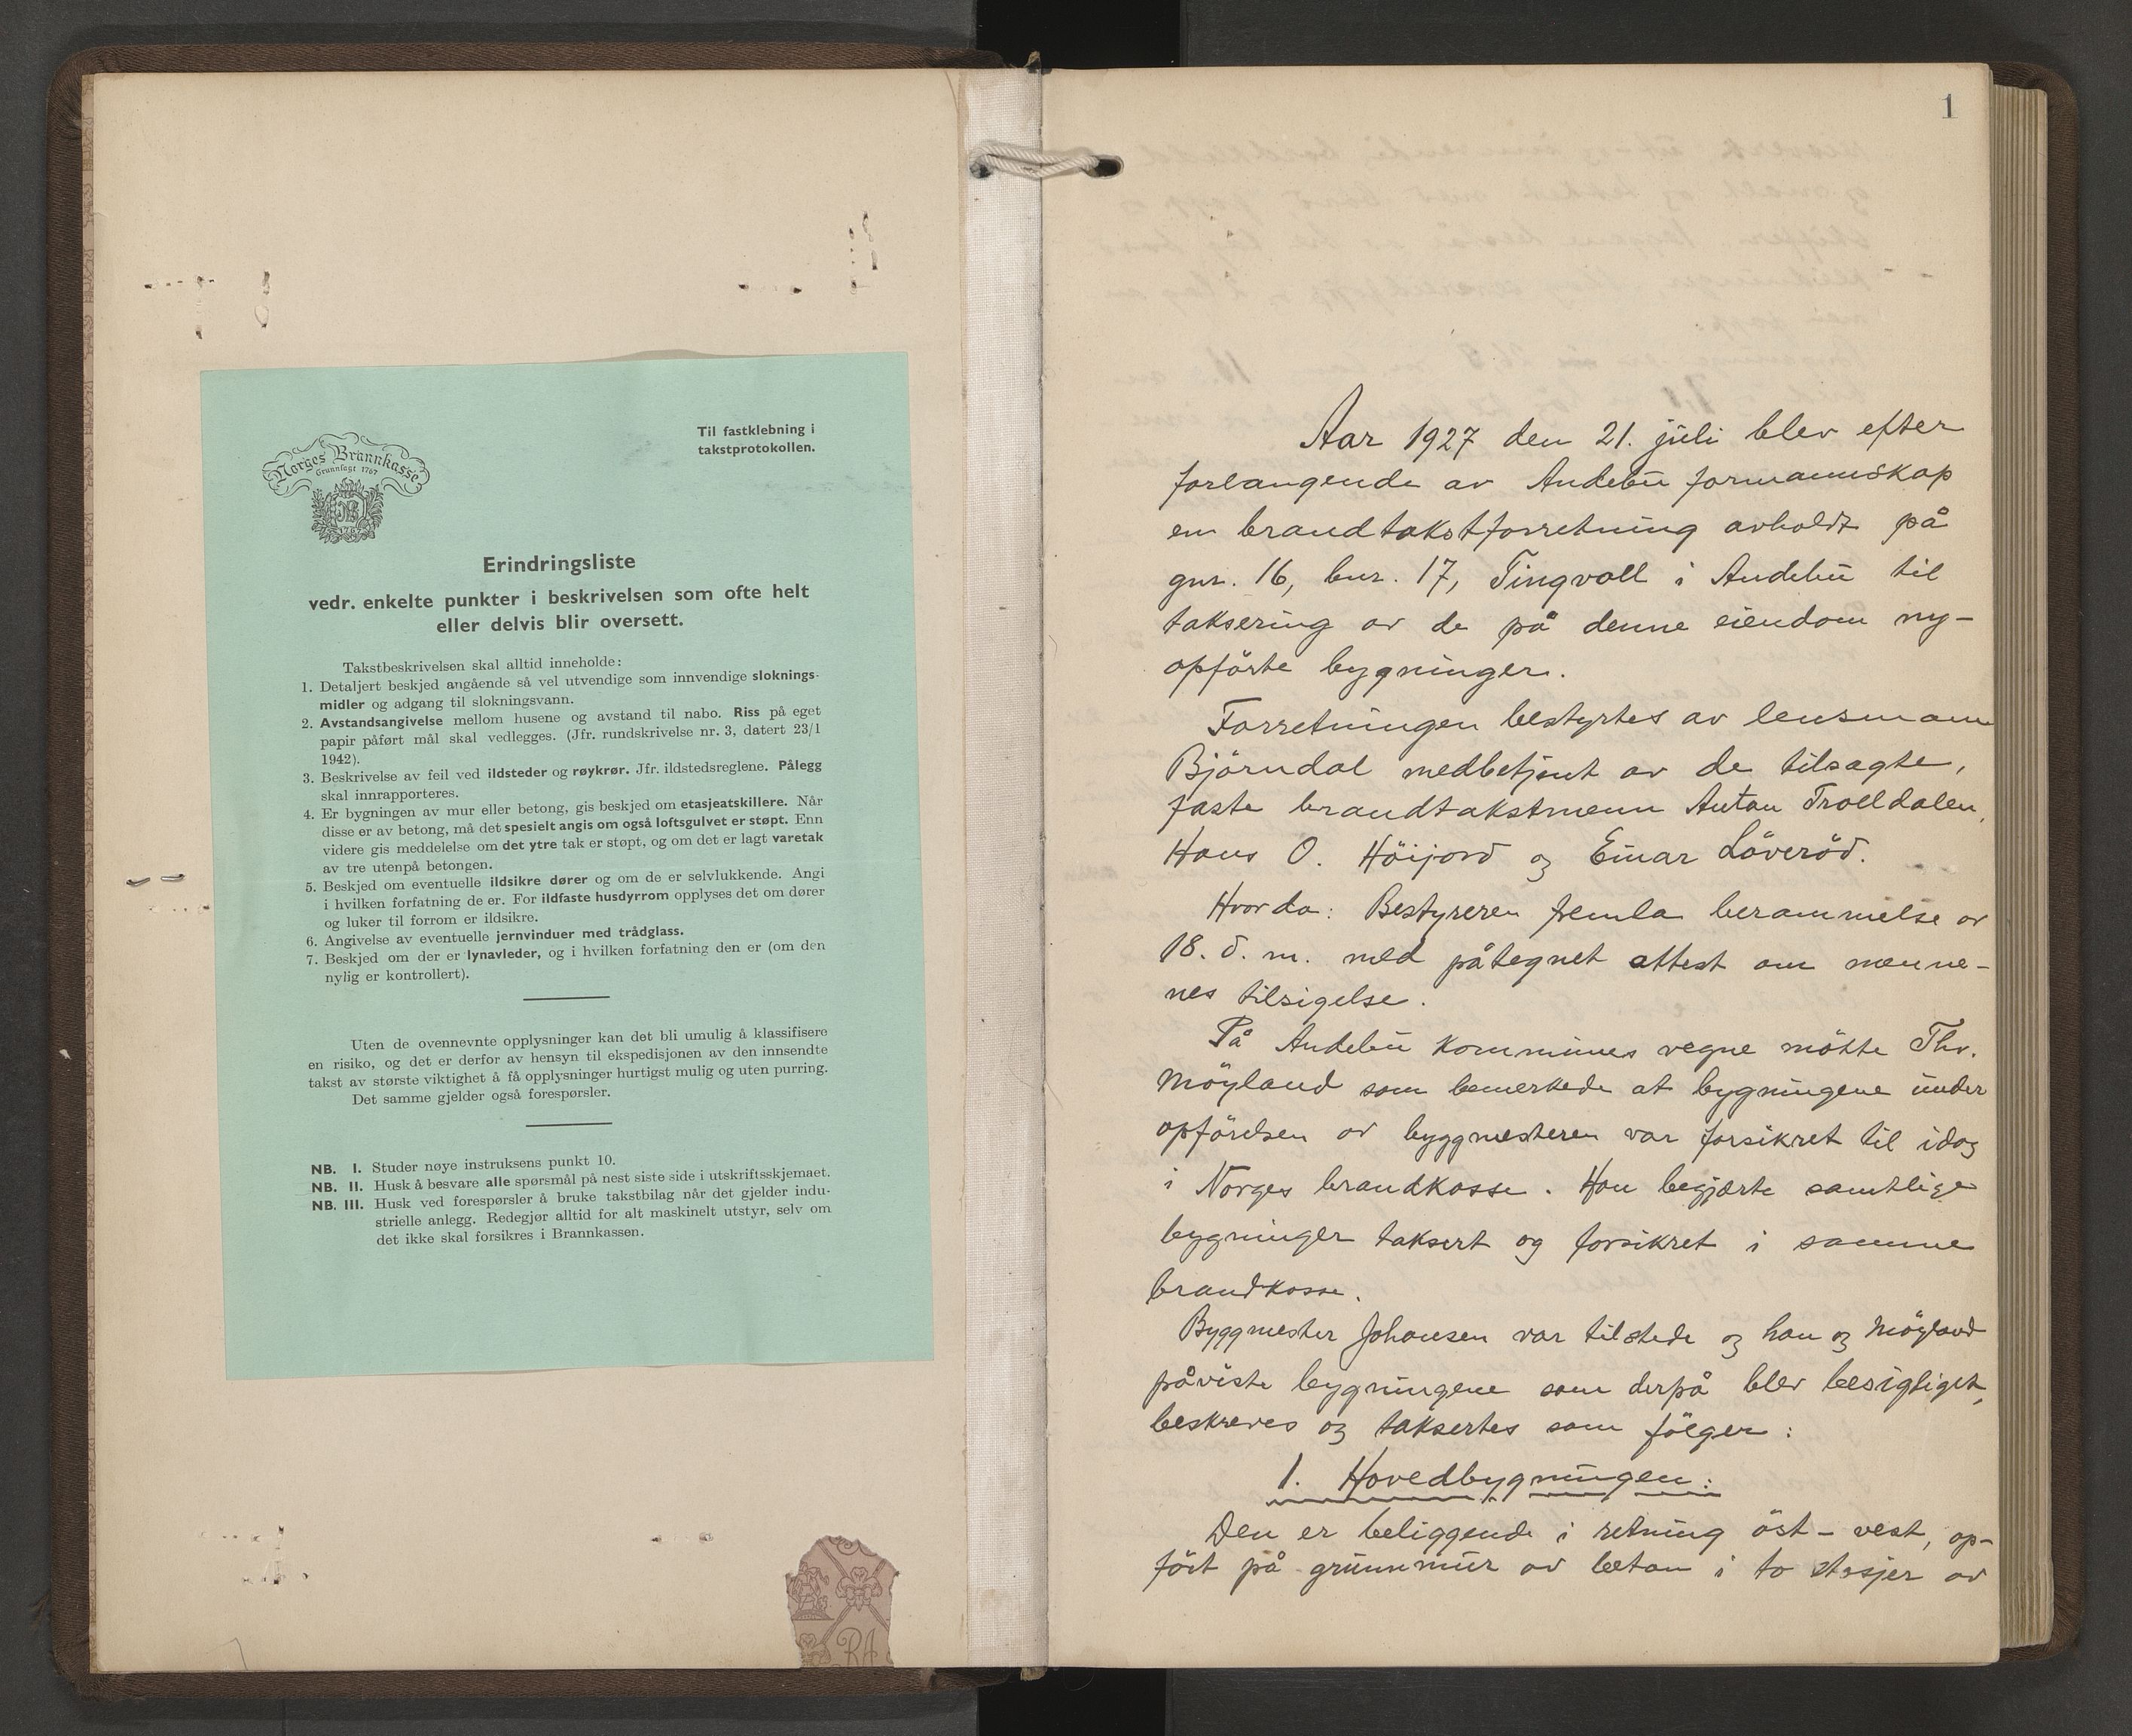 Norges Brannkasse
Grunnlagt 1767
NB
1767
Til fastklebning i
takstprotokollen.
Erindringsliste
vedr. enkelte punkter i beskrivelsen som ofte helt
eller delvis blir oversett.
Takstbeskrivelsen skal alltid inneholde:
1. Detaljert beskjed angående så vel utvendige som innvendige sloknings-
midler og adgang til slokningsvann.
2. Avstandsangivelse mellom husene og avstand til nabo. Riss på eget
papir påført mål skal vedlegges. (Jfr. rundskrivelse nr. 3, datert 23/1
1942).
3. Beskrivelse av feil ved ildsteder og røykrør. Jfr. ildstedsreglene. Pålegg
skal innrapporteres.
4. Er bygningen av mur eller betong, gis beskjed om etasjeatskillere. Når
disse er av betong, må det spesielt angis om også loftsgulvet er støpt. Enn
videre gis meddelelse om det ytre tak er støpt, og om det er lagt varetak
av tre utenpå betongen.
5. Beskjed om eventuelle ildsikre dører og om de er selvlukkende. Angi
i hvilken forfatning de er. For ildfaste husdyrrom opplyses det om dører
og luker til forrom er ildsikre.
6. Angivelse av eventuelle jernvinduer med trådglass.
7. Beskjed om der er lynavleder, og i hvilken forfatning den er (om den
nylig er kontrollert).
Uten de ovennevnte opplysninger kan det bli umulig å klassifisere
en risiko, og det er derfor av hensyn til ekspedisjonen av den innsendte
takst av største viktighet å få opplysninger hurtigst mulig og uten purring.
Det samme gjelder også forespørsler.
NB. I. Studer nøye instruksens punkt 10.
NB. II. Husk å besvare alle spørsmål på nest siste side i utskriftsskjemaet.
NB. III. Husk ved forespørsler å bruke takstbilag når det gjelder indu-
strielle anlegg. Redegjør alltid for alt maskinelt utstyr, selv om
det ikke skal forsikres i Brannkassen.
RA
1
Aar 1927 den 21. juli blev efter
forlangende av Andebu formannskap
en brandtakstforretning avholdt på
gnr. 16, bnr. 17, Tingvoll i Andebu til
taksering av de på denne eiendom ny-
opförte bygninger.
Forretningen bestyrtes av lensmann
Björndal medbetjent av de tilsagte,
faste brandtakstmenn Anton Trolldalen,
Hans O. Höijord og Einar Löveröd.
Hvorda: Bestyreren femla berammelse av
18. d. m. med påtegnet attest om menne-
nes tilsigelse.
På Andebu kommunes vegne mötte Thv.
Möyland som bemerkede at bygningene under
opförelsen av byggmesteren var forsikret til idag
i Norges brandkasse. Han begjærte samtlige
bygninger taksert og forsikret i samme
brandkasse.
Byggmester Johansen var tilstede og han og Möyland
påviste bygningene som derpå blev besigtiget,
beskreves og taksertes som fölger:
1. Hovedbygningen:
Den er beliggende i retning öst - vest, op-
fört på grunnmur av betan i to etasjer av